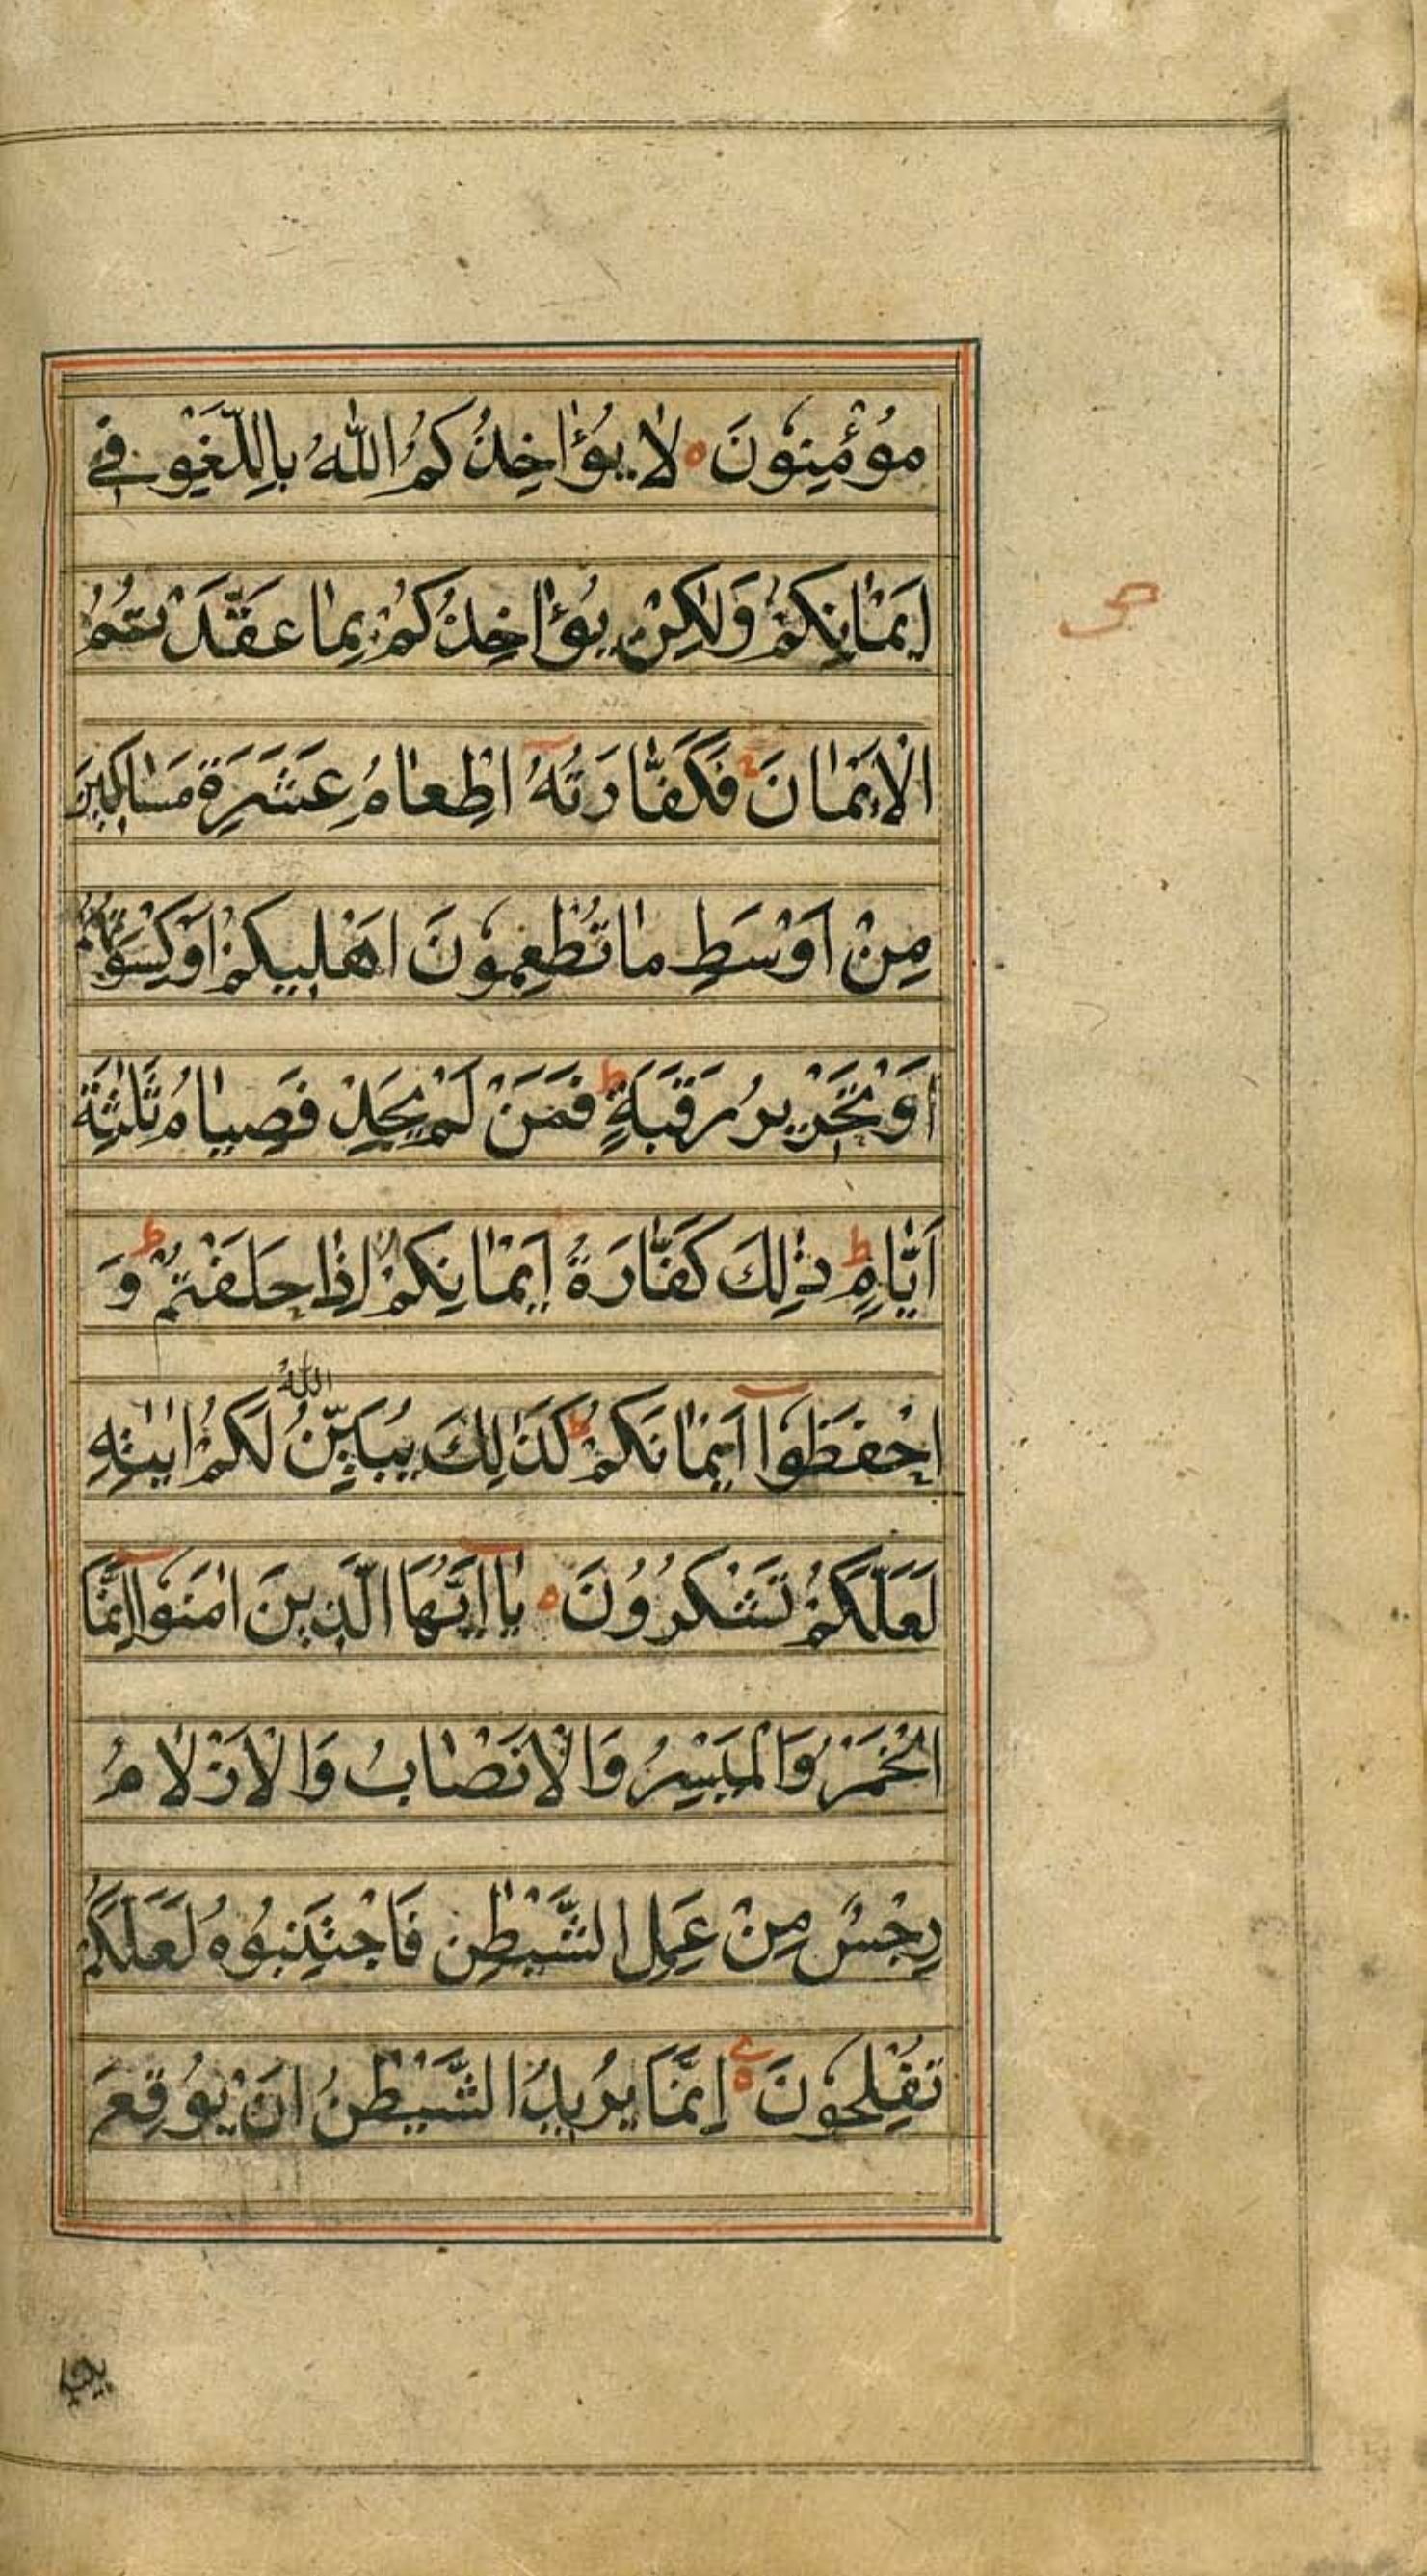 مُؤْمِنُونَ ۝ لَا يُؤَاخِذُكُمُ اللّٰهُ بِاللَّغْوِ فِے
اَيْمَانِكُمْ وَلٰكِنْ يُؤَاخِذُكُمْ بِمَا عَقَّدْتُمُ
الْاَيْمَانَ ج فَكَفَّارَتُهُٓ اِطْعَامُ عَشَرَةِ مَسَاكِيْنَ
مِنْ اَوْسَطِ مَا تُطْعِمُوْنَ اَهْلِيكُمْ اَوْكِسْوَتُهُمْ
اَوْ تَحْرِيرُ رَقَبَةٍ ط فَمَنْ لَمْ يَجِدْ فَصِيَامُ ثَلٰثَةِ
اَيَّامٍ ط ذٰلِكَ كَفَّارَةُ اَيْمَانِكُمْ اِذَا حَلَفْتُمْ ط وَ
احْفَظُوْٓا اَيْمَانَكُمْ ط كَذٰلِكَ يُبَيِّنُ اللّٰهُ لَكُمْ اٰيٰتِهٖ
لَعَلَّكُمْ تَشْكُرُوْنَ ۝ يَآ اَيُّهَا الَّذِينَ اٰمَنُوْٓا اِنَّمَا
الْخَمْرُ وَالْمَيْسِرُ وَالْاَنْصَابُ وَالْاَزْلَامُ
رِجْسٌ مِنْ عَمَلِ الشَّيْطٰنِ فَاجْتَنِبُوهُ لَعَلَّكُمْ
تُفْلِحُوْنَ ۝ اِنَّمَا يُرِيدُ الشَّيْطٰنُ اَنْ يُوْقِعَ